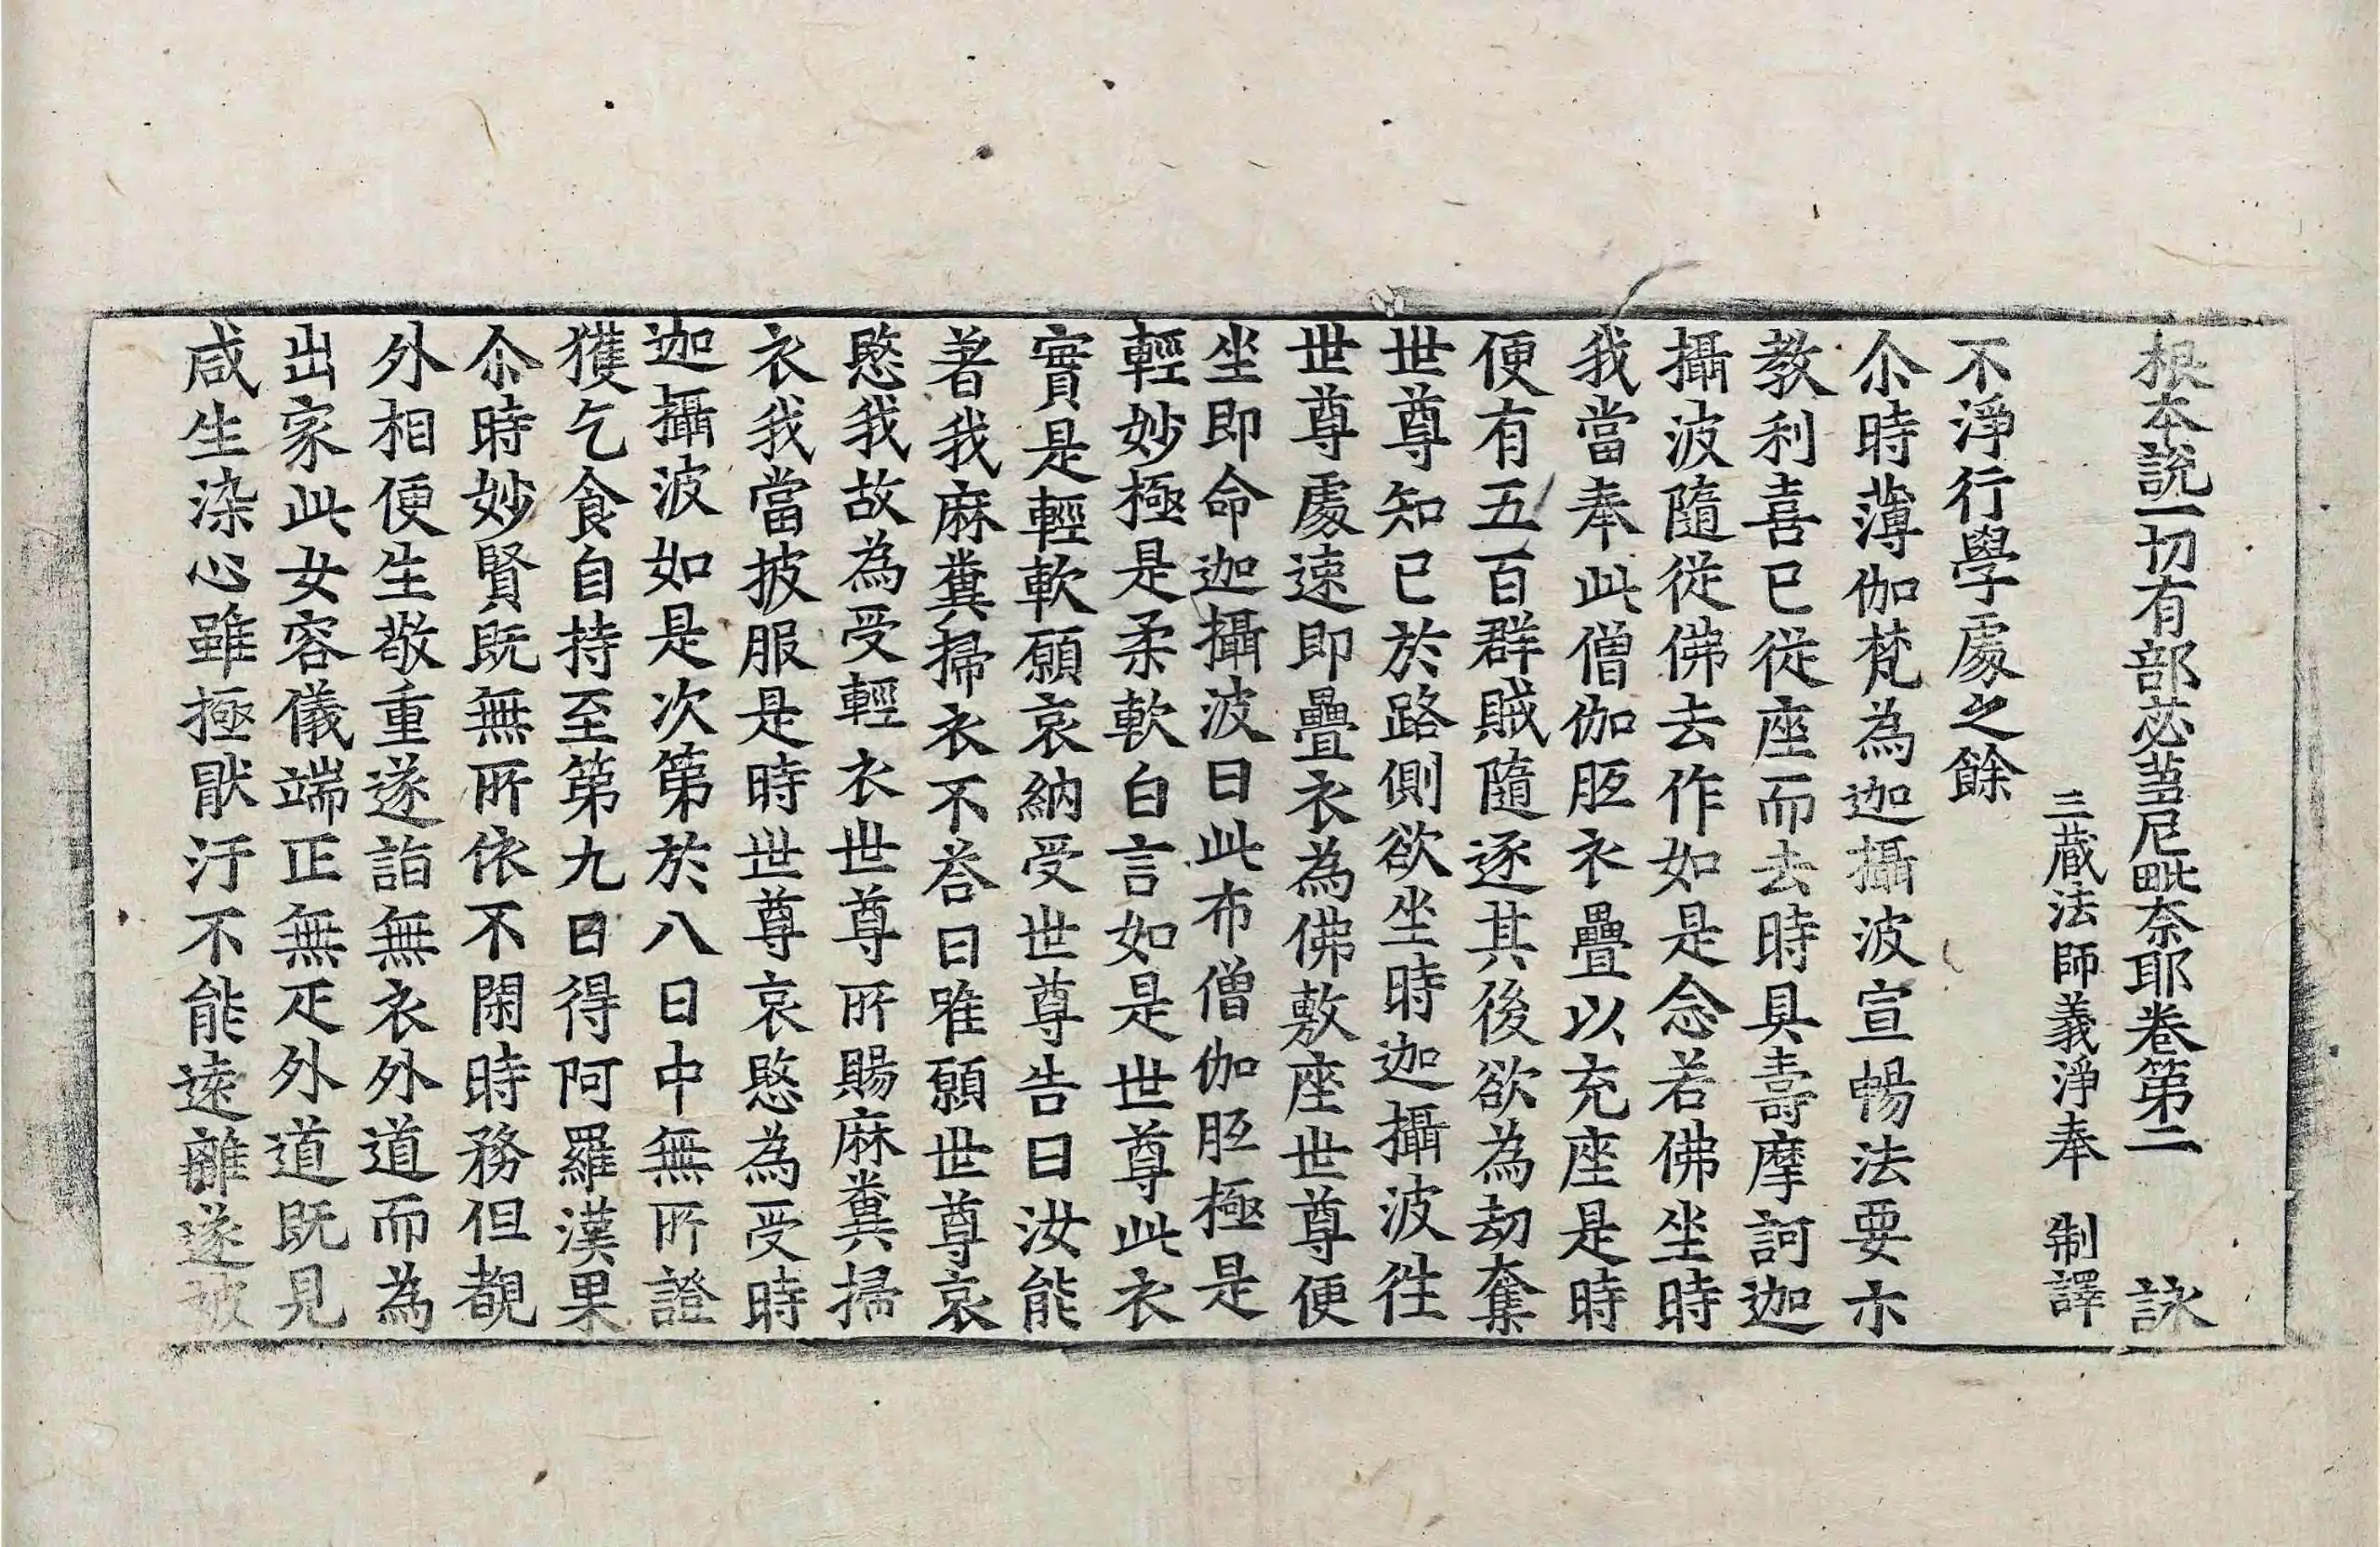 根本說一切有部苾蒭尼毗奈耶卷第二 詠
三藏法師義淨奉 制譯
不淨行學處之餘
尒時薄伽梵為迦攝波宣暢法要示
教利喜已從座而去時具壽摩訶迦
攝波隨從佛去作如是念若佛坐時
我當奉此僧伽胝衣疊以充座是時
便有五百群賊隨逐其後欲為劫奪
世尊知已於路側欲坐時迦攝波徃
世尊處速即疊衣為佛敷座世尊便
坐即命迦攝波曰此布僧伽胝極是
輕妙極是柔軟白言如是世尊此衣
實是輕軟願哀納受世尊告曰汝能
著我麻糞掃衣不荅曰唯願世尊哀
愍我故為受輕衣世尊所賜麻糞掃
衣我當披服是時世尊哀愍為受時
迦攝波如是次第於八日中無所證
獲乞食自持至第九日得阿羅漢果
尒時妙賢既無所依不閑時務但覩
外相便生敬重遂詣無衣外道而為
出家此女容儀端正無疋外道既見
咸生染心雖極猒汙不能遠離遂被